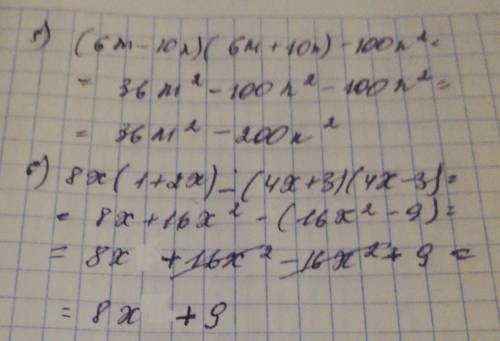 5) (6m-10n)(6m+10n)-100n²=
= 36m²-100n²-100n²=
= 36m²-200n²
в) 8x(1+2x)-(4x+3)(4x-3)=
= 8x+16x²-(16x²-9)=
= 8x +16x²-16x²+9 =
= 8x +9